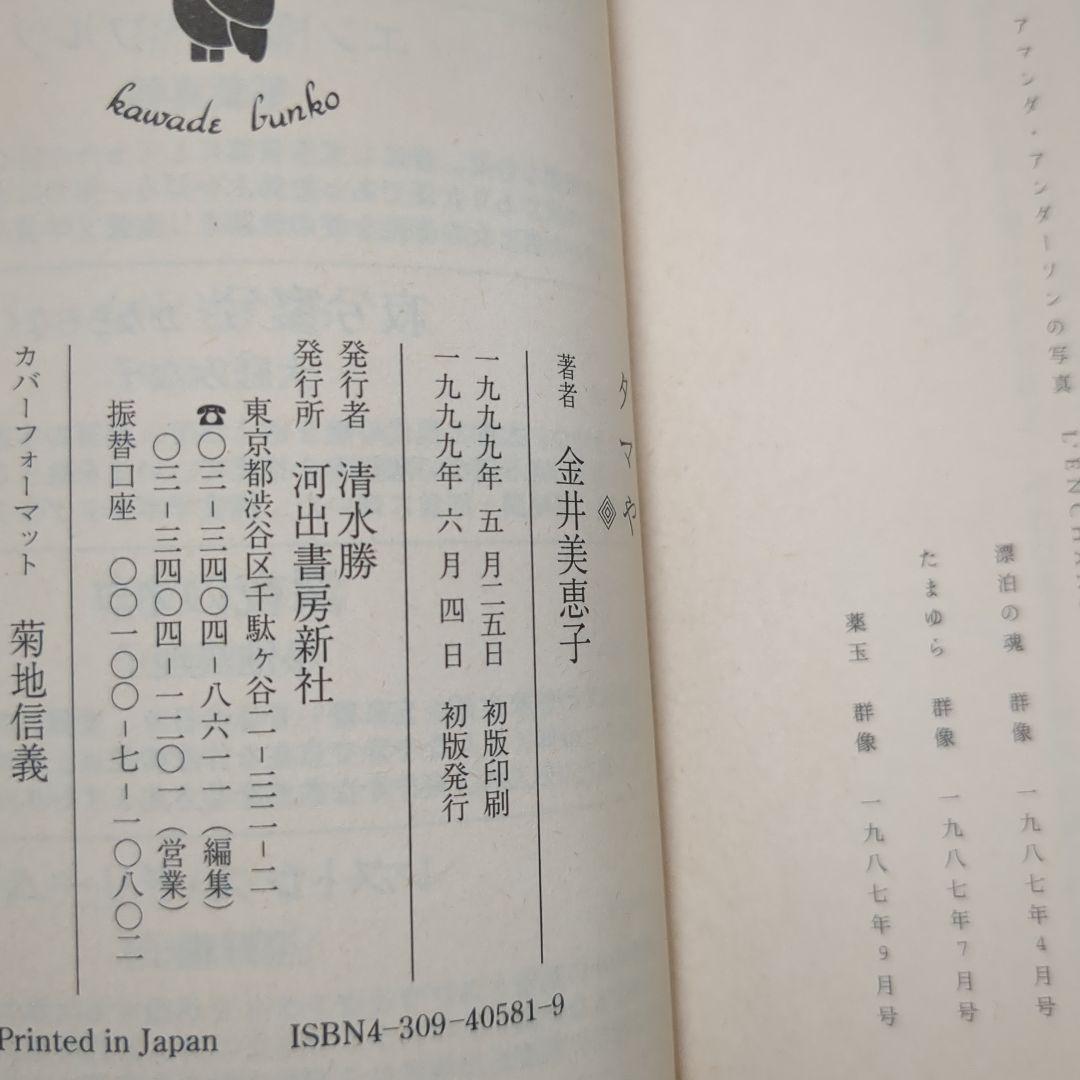 アマンダ・アンダーソンの写真
漂泊の魂 群像 一九八七年4月号
たまゆら 群像 一九八七年7月号
薬玉 群像 一九八七年9月号
kawade bunko
タマや
著者 金井美恵子
一九九九年 五 月二五日 初版印刷
一九九九年 六 月 四 日 初版発行
発行者 清水勝
発行所 河出書房新社
東京都渋谷区千駄ヶ谷二-三二-二
☎〇三-三四〇四-八六一一(編集)
〇三-三四〇四-一二〇一(営業)
振替口座 〇〇一〇〇-七-一〇八〇二
カバーフォーマット 菊地信義
Printed in Japan ISBN4-309-40581-9